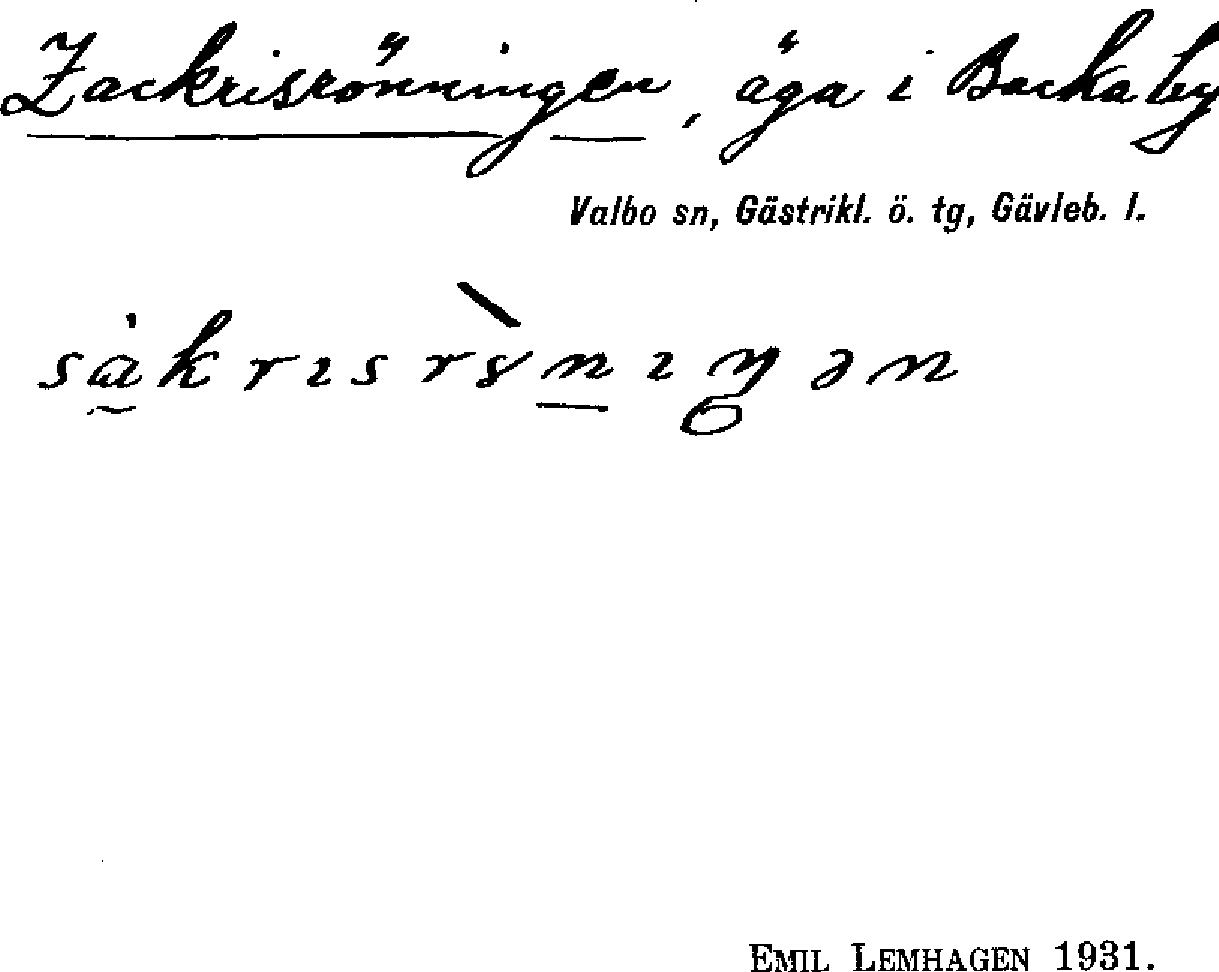 Zackrisrönningen, äga i Backa by
Valbo sn, Gästrikl. ö. tg, Gävleb. l.
EMIL LEMHAGEN 1931.